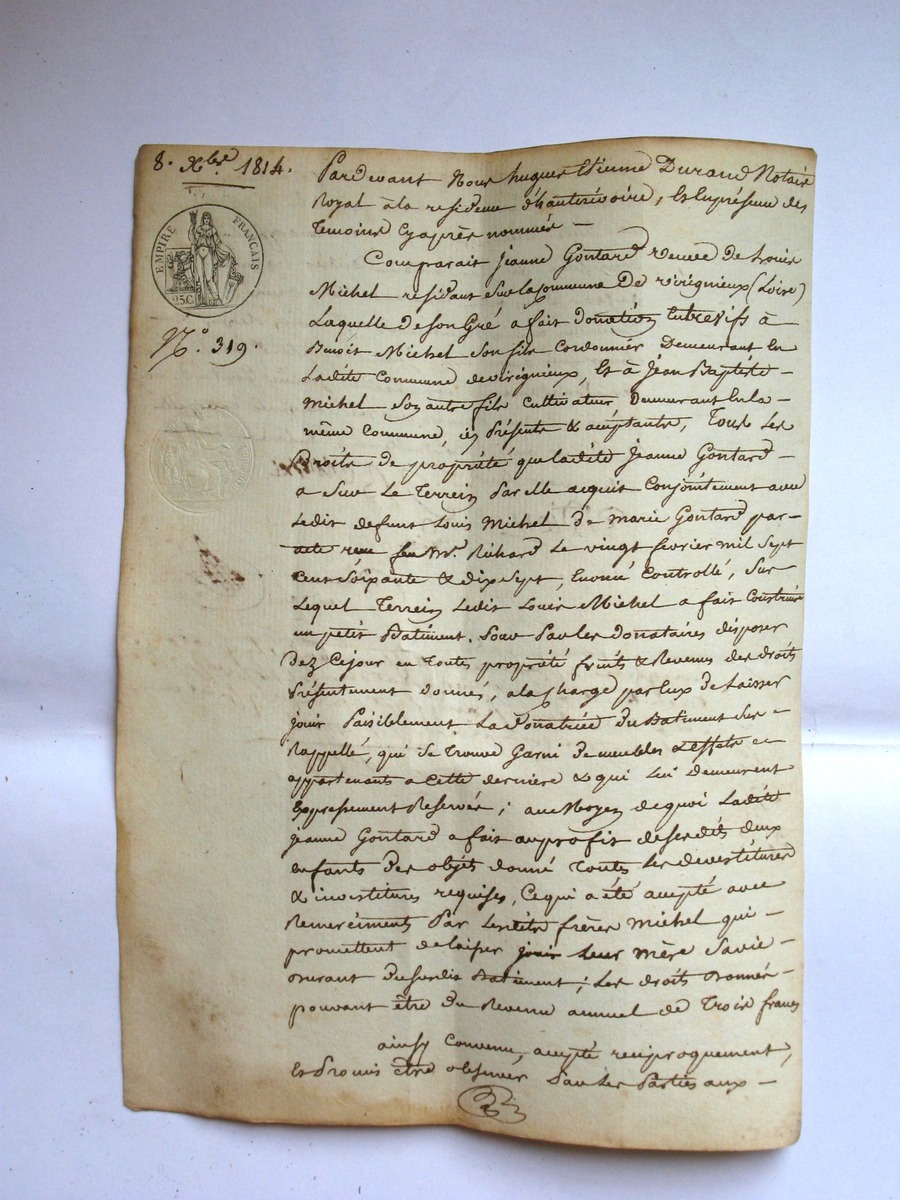 8. Xbre. 1814.
EMPIRE FRANÇAIS
25 C.
N°. 319.
Pardevant Nous hugues Etienne Durand Notaire
Royal à la residence d'hauterivoire, Et En présence des
Temoins Cy après nommés —
Comparait Jeanne Gontard veuve de Louis
Michel residant Sur la Commune De virigneux (Loire)
Laquelle de Son Gré a fait donation Entrevifs à
Benoit Michel Son fils Cordonnier Demeurant En
Ladite Commune de virigneux, Et à Jean Baptiste —
Michel Son autre fils Cultivateur Demeurant En la —
même Commune, icy Présents & acceptants, Tous Les
Droits de propriété que ladite Jeanne Gontard —
a Sur Le Terrein Par elle acquit Conjointement avec
Ledit defunt Louis Michel de marie Gontard par —
acte reçu feu Mr. Richard Le vingt fevrier mil Sept
Cent Soixante & dix Sept, Controllé, Sur
Lequel Terrein Ledit Louis Michel a fait Construire
un petit Batiment. Pour Par Les Donataires disposer
Dez Ce jour en Toutes propriété fruits & Revenus des droits
Présentement donnés, a la Charge par Eux de Laisser
jouir Paisiblement La Donatrice du Batiment Sus —
Rappellé, qui Se Trouve Garni De meubles & effets —
appartenants a Cette derniere & qui Lui Demeurent
Expressement Reservés; au Moyen de quoi Ladite
Jeanne Gontard a fait au profit de Ses dits deux
enfants Des objets donné Toutes Les devestitures
& investitures requises, Ce qui a été accepté avec
Remerciments Par Lesdits frères Michel qui —
promettent de laisser jouir Leur mère Sa vie —
durant Du Susdit Batiment; Les droits Donnés —
pouvant être du Revenu annuel de Trois francs
ainsy Convenu, accepté reciproquement,
Et Promis être observer Par Les Parties aux —